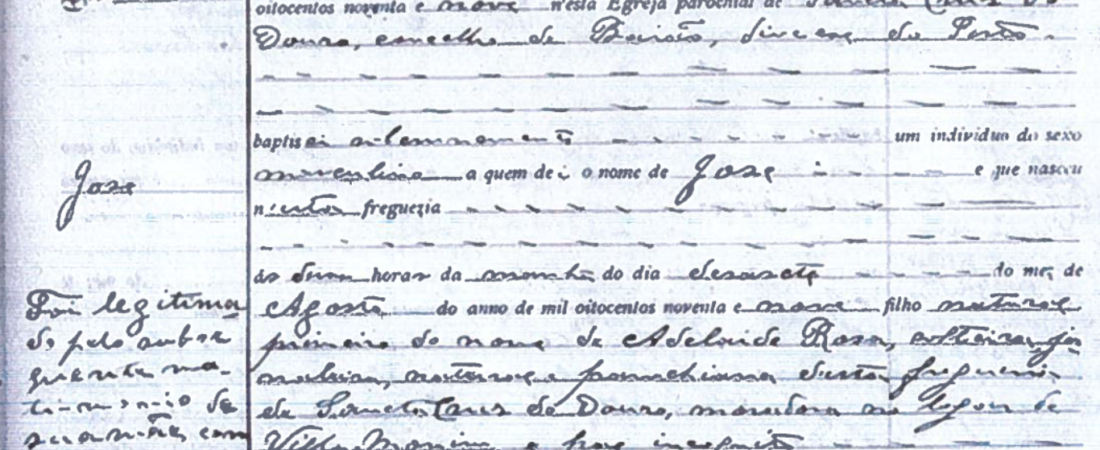 oitocentos noventa e nove n'esta Egreja parochial de Santa Cruz do
Douro, concelho de Baião, diocese do Porto
baptisei solemnemente um individuo do sexo
masculino a quem dei o nome de José e que nasceu
José
n'esta freguezia
ás duas horas da manhã do dia desasete do mez de
Agosto do anno de mil oitocentos noventa e nove filho natural
primeiro do nome de Adelaide Rosa, solteira, jor
naleira, natural e parochiana desta freguezia
de Santa Cruz do Douro, moradora no logar de
Villa e pae incognito
Foi legitima
do pelo subse
quente ma-
trimonio de
sua mãe com